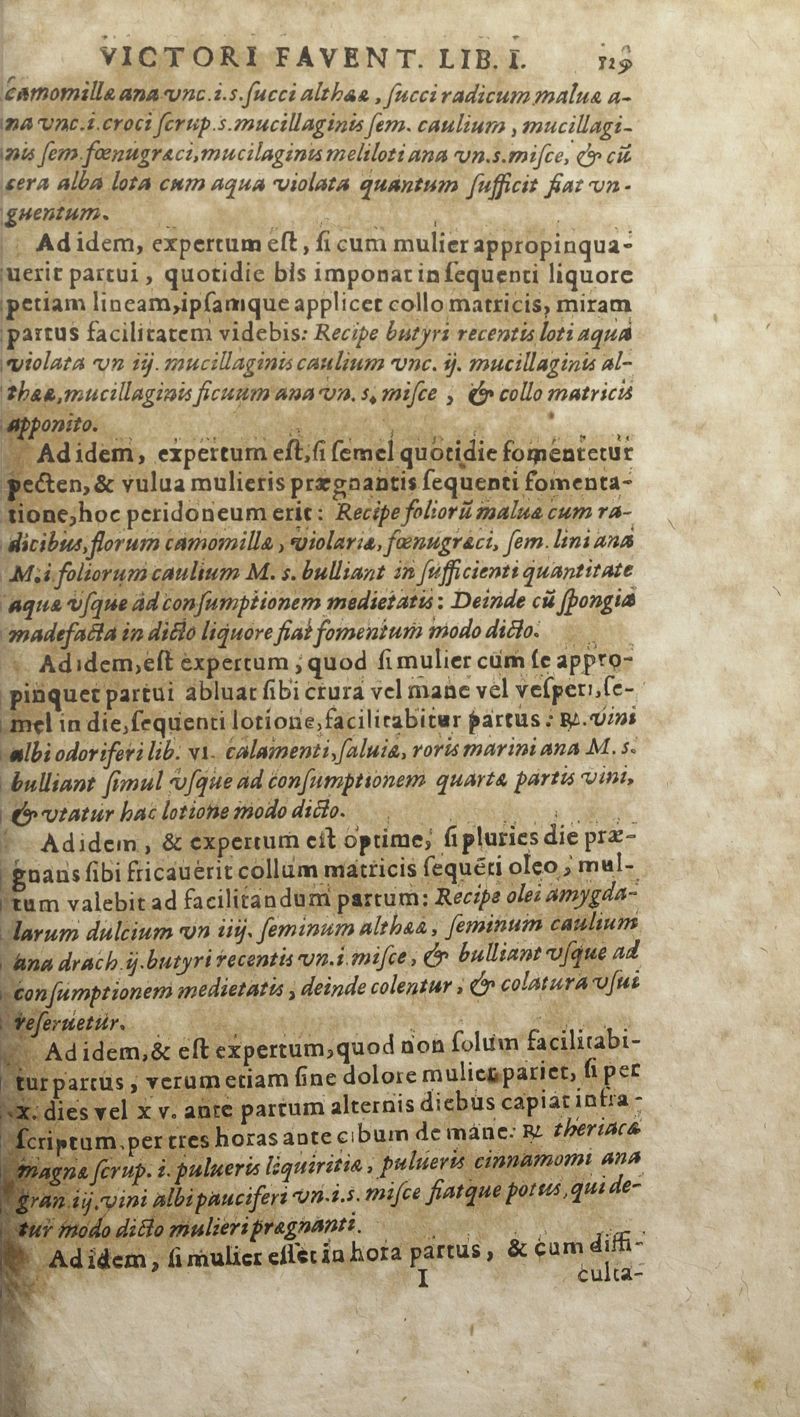 VICTORI FAVENT. LIB. I. 129
camomillæ ana vnc.i.s.ſucci althææ, ſucci radicum maluæ a-
na vnc.i.croci ſcrup.s.mucillaginis ſem. caulium, mucillagi-
nis ſem.fœnugræci,mucilaginis meliloti ana vn.s.miſce, & cū
cera alba lota cum aqua violata quantum ſufficit fiat vn-
guentum.
Ad idem, expertum eſt, ſi cum mulier appropinqua-
uerit partui, quotidie bis imponat in ſequenti liquore
petiam lineam,ipſamque applicet collo matricis, miram
partus facilitatem videbis: Recipe butyri recentis loti aqua
violata vn iij. mucillaginis caulium vnc. ij. mucillaginis al-
thææ,mucillaginis ficuum ana vn. s. miſce, & collo matricis
apponito.
Ad idem, expertum eſt,ſi ſemel quotidie fomentetur
pecten,& vulua mulieris prægnantis ſequenti fomenta-
tione,hoc peridoneum erit: Recipe foliorū maluæ cum ra-
dicibus,florum camomillæ, violariæ,fœnugræci, ſem. lini ana
M.i foliorum caulium M. s. bulliant in ſufficienti quantitate
aquæ vſque ad conſumptionem medietatis: Deinde cū ſpongia
madefacta in dicto liquore fiat fomentum modo dicto.
Ad idem,eſt expertum, quod ſi mulier cùm ſe appro-
pinquet partui abluat ſibi crura vel mane vel veſperi,ſe-
mel in die,ſequenti lotione,facilitabitur partus: ℞.vini
albi odoriferi lib. vi. calamenti,ſaluiæ, roris marini ana M. s.
bulliant ſimul vſque ad conſumptionem quartæ partis vini,
& vtatur hac lotione modo dicto.
Ad idem, & expertum eſt optime, ſi pluries die præ-
gnans ſibi fricauerit collum matricis ſequēti oleo, mul-
tum valebit ad facilitandum partum: Recipe olei amygda-
larum dulcium vn iiij. ſeminum althææ, ſeminum caulium
ana drach.ij.butyri recentis vn.i.miſce, & bulliant vſque ad
conſumptionem medietatis, deinde colentur, & colatura vſui
reſeruetur.
Ad idem,& eſt expertum,quod non ſolùm facilitabi-
tur partus, verum etiam ſine dolore mulier pariet, ſi per
x. dies vel x v. ante partum alternis diebus capiat infra-
ſcriptum,per tres horas ante cibum de mane: ℞ theriacæ
magnæ ſcrup. i. pulueris liquiritiæ, pulueris cinnamomi ana
gran.iij.vini albi pauciferi vn.i.s. miſce fiatque potus,qui de-
tur modo dicto mulieri prægnanti.
Ad idem, ſi mulier eſſet in hora partus, & cum diffi-
I culta-